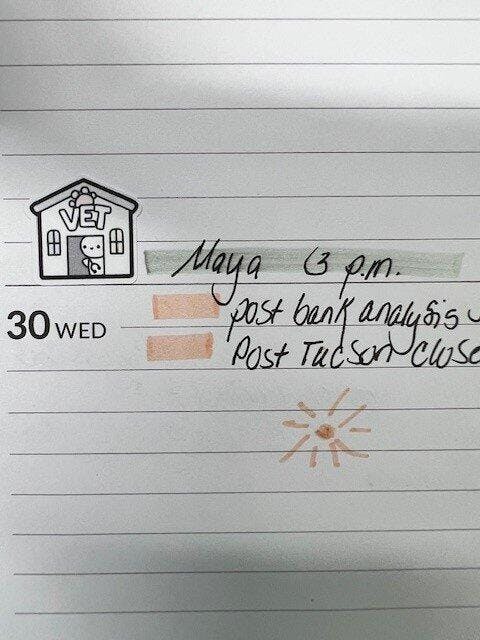 VET
Maya 3 p.m.
post bank analysis
30 WED
Post Tucson close